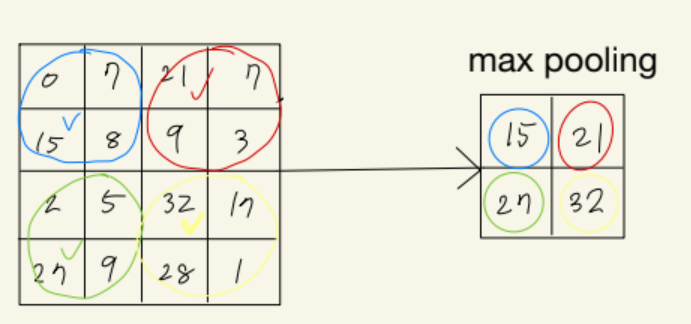 0 7 21 7
15 8 9 3
2 5 32 17
27 9 28 1
max pooling
15 21
27 32